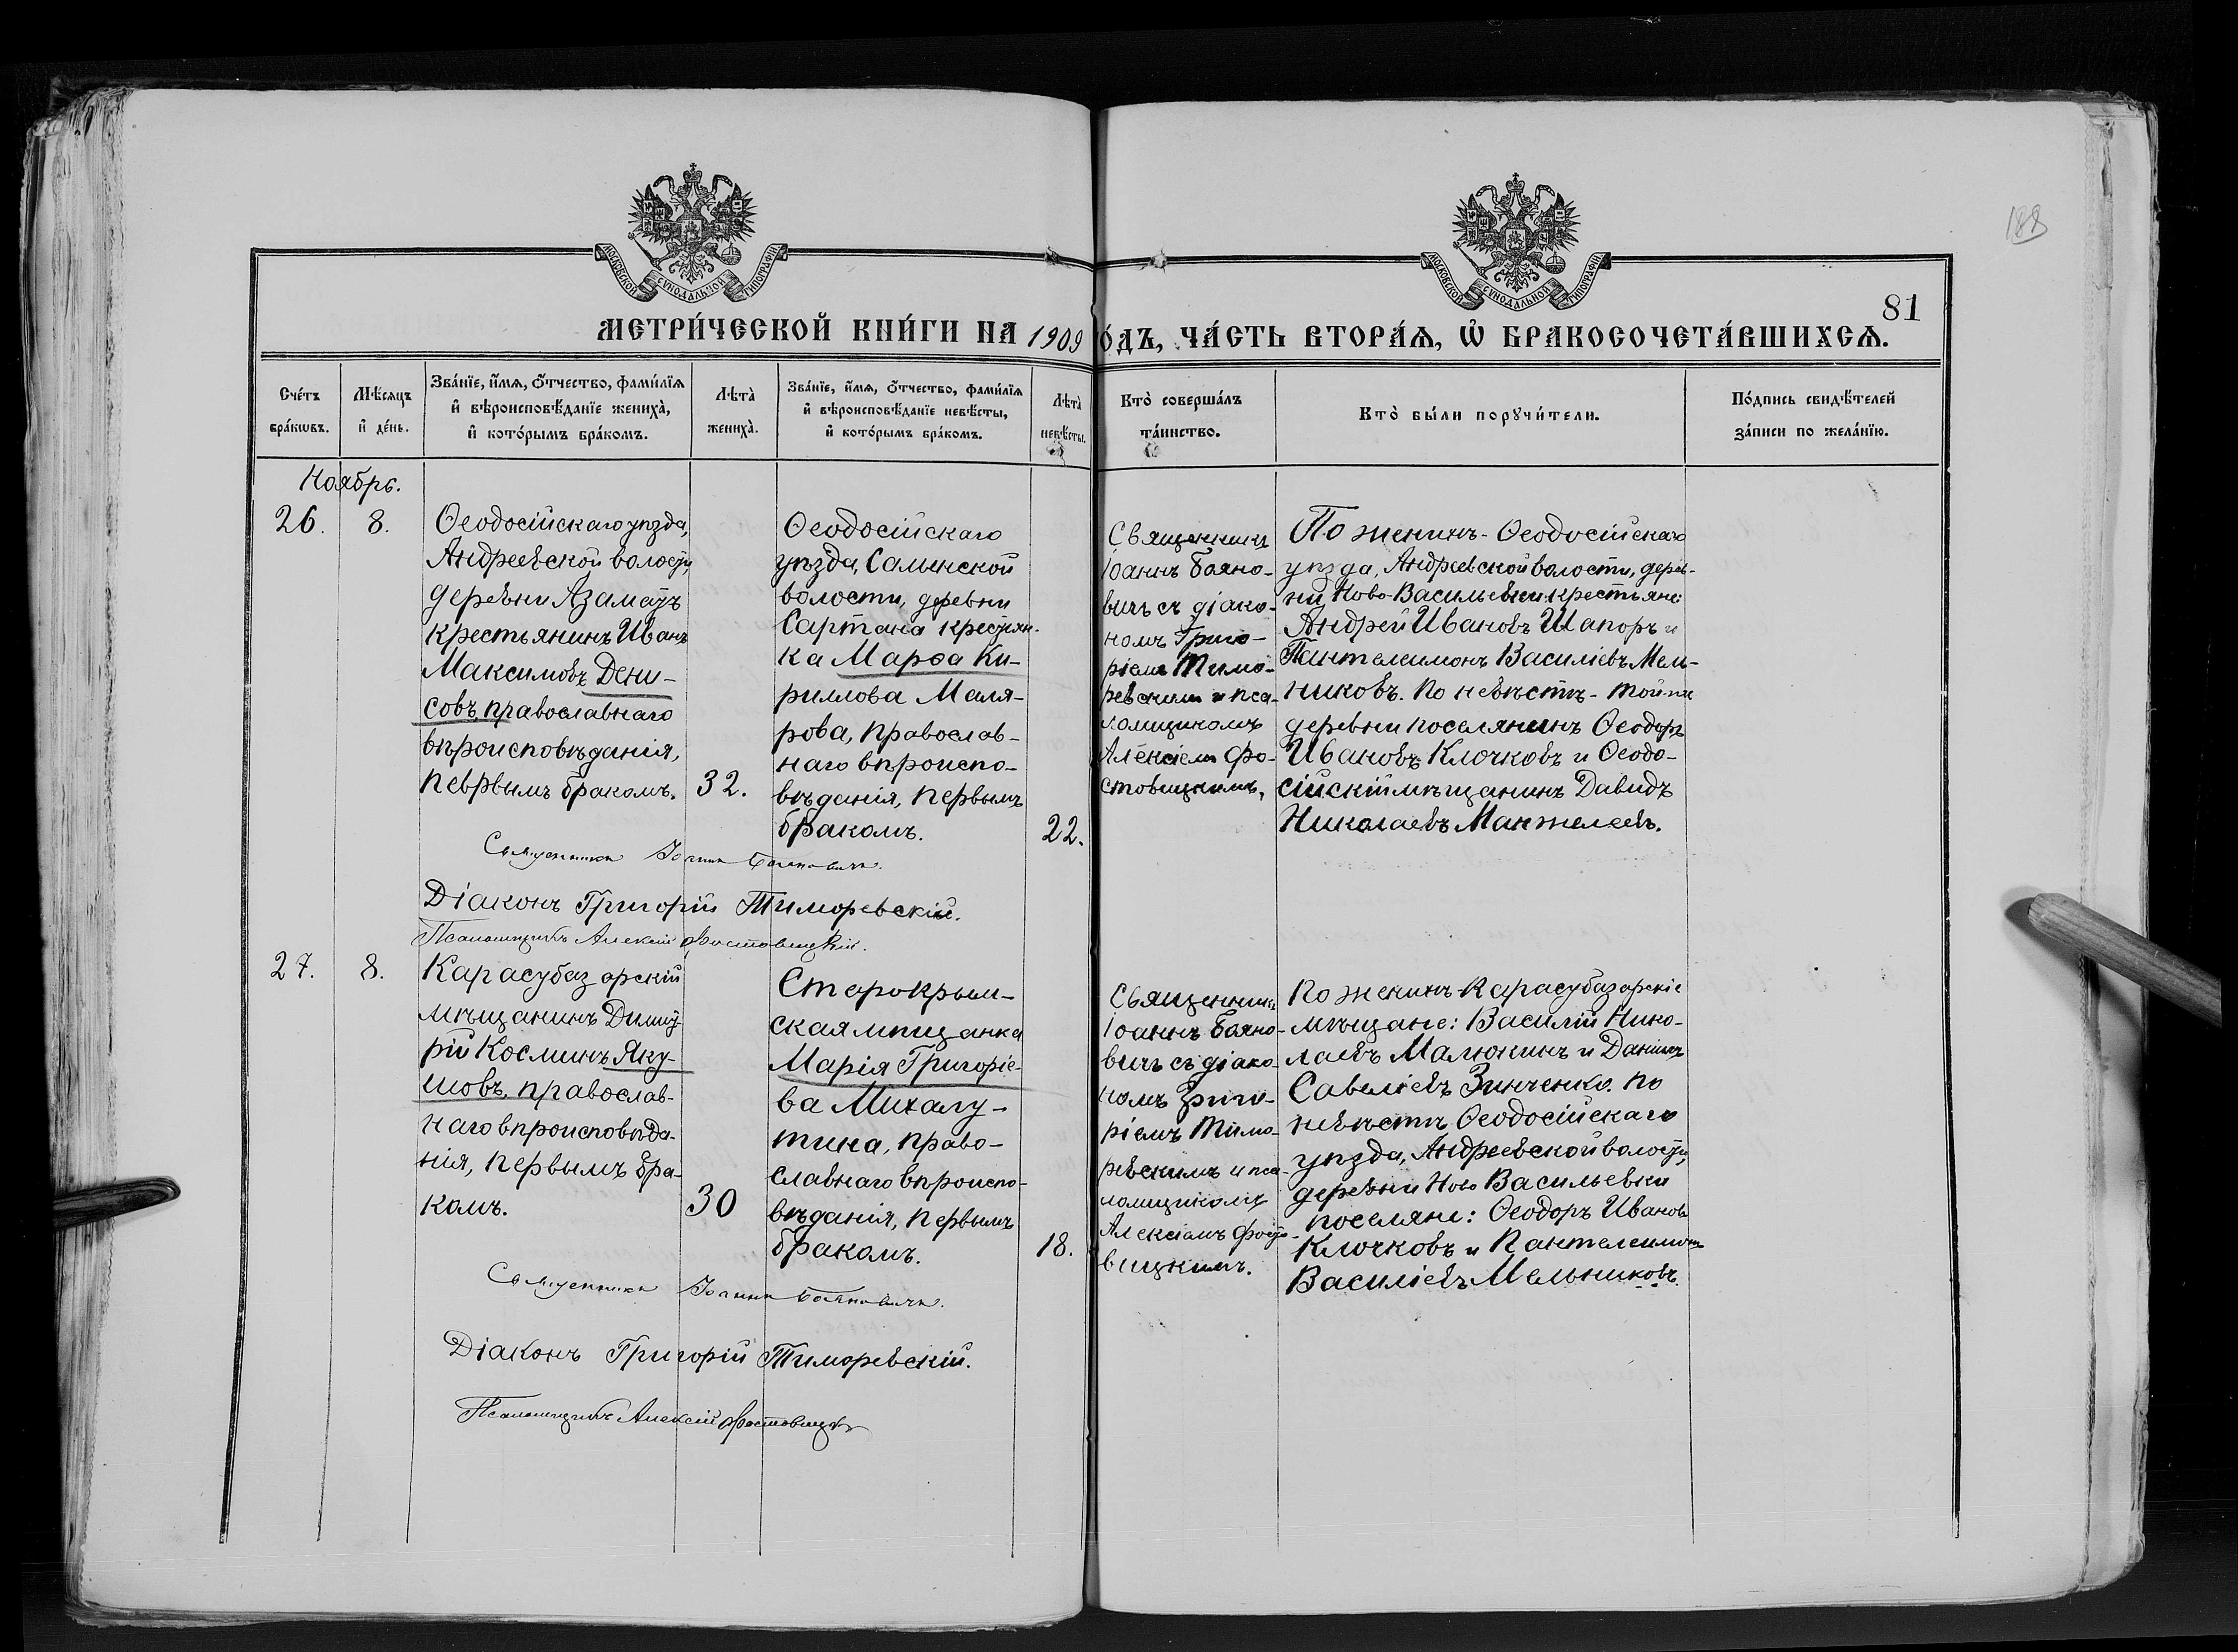 188
МОСКОВСКОЙ СУНОДАЛЬНОЙ ТИПОГРАФІИ
МОСКОВСКОЙ СУНОДАЛЬНОЙ ТИПОГРАФІИ
81
МЕТРИ́ЧЕСКОЙ КНИ́ГИ НА 1909 ГО́ДЪ, ЧА́СТЬ ВТОРА́Ѧ, Ѽ БРАКОСОЧЕТА́ВШИХСѦ.
Сче́тъ
бра́кѡвъ.
Мѣ́сѧцъ
и҆ де́нь.
Зва́нїе, и҆́мѧ, ѻ҆́тчество, фами́лїѧ
и҆ вѣроисповѣ́данїе жениха̀,
и҆ кото́рымъ бра́комъ.
Лѣта̀
жениха̀.
Зва́нїе, и҆́мѧ, ѻ҆́тчество, фами́лїѧ
и҆ вѣроисповѣ́данїе невѣ́сты,
и҆ кото́рымъ бра́комъ.
Лѣта̀
невѣ́сты.
Кто̀ соверша́лъ
та́инство.
Кто̀ бы́ли порꙋчи́тели.
По́дпись свидѣ́телей
за́писи по жела́нїю.
Ноябрь.
26.
8.
Ѳеодосійскаго уѣзда,
Андреевской волости,
деревни Азаматъ
крестьянинъ Иванъ
Максимовъ Дени-
совъ, православнаго
вѣроисповѣданія,
певрвымъ бракомъ.
32.
Ѳеодосійскаго
уѣзда, Салынской
волости, деревни
Сартана крестьян-
ка Марѳа Ки-
риллова Маля-
рова, православ-
наго вѣроиспо-
вѣданія, первымъ
бракомъ.
22.
Священникъ
Іоаннъ Баяно-
вичъ съ діако-
номъ Григо-
ріемъ Тимо-
ревскимъ и пса-
ломщикомъ
Алексіемъ Фо-
стовицкимъ,
По женихѣ - Ѳеодосійскаго
уѣзда, Андреевской волости, дерев-
ни Ново-Васильевки крестьяне
Андрей Ивановъ Шапоръ и
Пантелеимонъ Василіевъ Мель-
никовъ. По невѣстѣ - той-же
деревни поселянинъ Ѳеодоръ
Ивановъ Клочковъ и Ѳеодо-
сійскій мѣщанинъ Давидъ
Николаевъ Манжелеевъ.
Священникъ Іоаннъ Баяновичъ.
Діаконъ Григорій Тиморевскій.
Псаломщикъ Алексій Фостовицкій.
27.
8.
Карасубазарскій
мѣщанинъ Димит-
рій Косминъ Яку-
шовъ, православ-
наго вѣроисповѣда-
нія, первымъ бра-
комъ.
30
Старокрым-
ская мѣщанка
Марія Григоріе-
ва Михалу-
тина, право-
славнаго вѣроиспо-
вѣданія, первымъ
бракомъ.
18.
Священникъ
Іоаннъ Баяно-
вичъ съ діако-
номъ Григо-
ріемъ Тимо-
ревскимъ и пса-
ломщикомъ
Алексіемъ Фосто-
вицкимъ.
По женихѣ - Карасубазарскіе
мѣщане: Василій Нико-
лаевъ Малюкинъ и Даніилъ
Савеліевъ Зинченко. По
невѣстѣ Ѳеодосійскаго
уѣзда, Андреевской волости,
деревни Ново Васильевки
поселяне: Ѳеодоръ Ивановъ
Клочковъ и Пантелеимонъ
Василіевъ Мельниковъ.
Священникъ Іоаннъ Баяновичъ.
Діаконъ Григорій Тиморевскій.
Псаломщикъ Алексій Фостовицкій